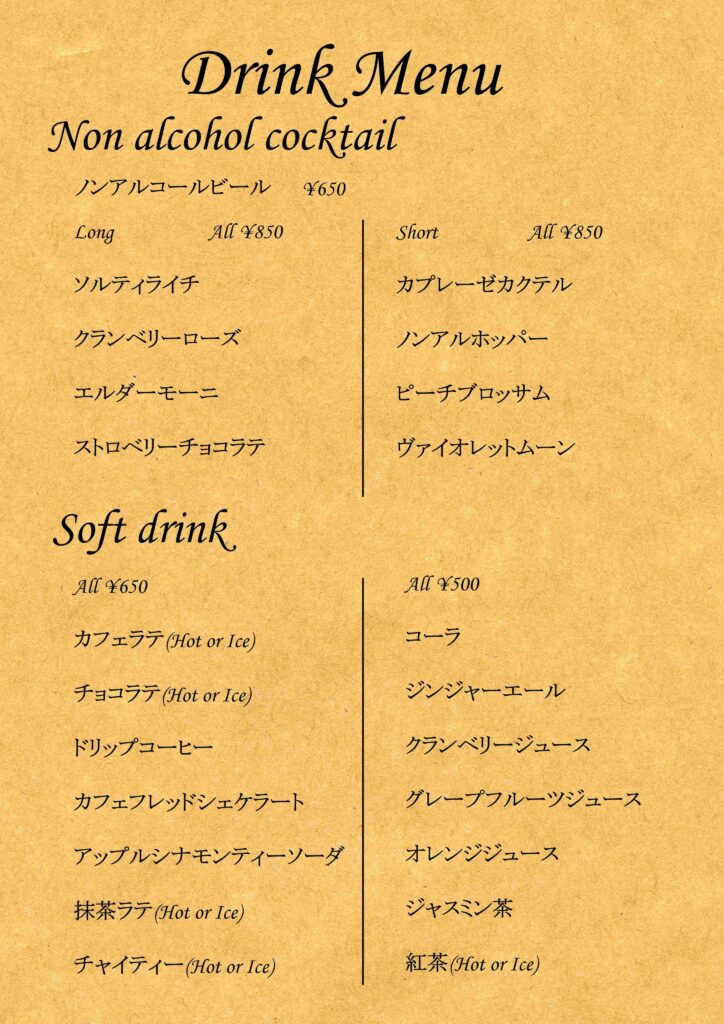 Drink Menu
Non alcohol cocktail
ノンアルコールビール ¥650
Long All ¥850
ソルティライチ
クランベリーローズ
エルダーモーニ
ストロベリーチョコラテ
Short All ¥850
カプレーゼカクテル
ノンアルホッパー
ピーチブロッサム
ヴァイオレットムーン
Soft drink
All ¥650
カフェラテ(Hot or Ice)
チョコラテ(Hot or Ice)
ドリップコーヒー
カフェフレッドシェケラート
アップルシナモンティーソーダ
抹茶ラテ(Hot or Ice)
チャイティー(Hot or Ice)
All ¥500
コーラ
ジンジャーエール
クランベリージュース
グレープフルーツジュース
オレンジジュース
ジャスミン茶
紅茶(Hot or Ice)